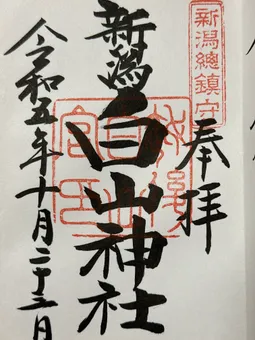 新潟總鎮守
奉拝
新潟白山神社
令和五年十月二十二日